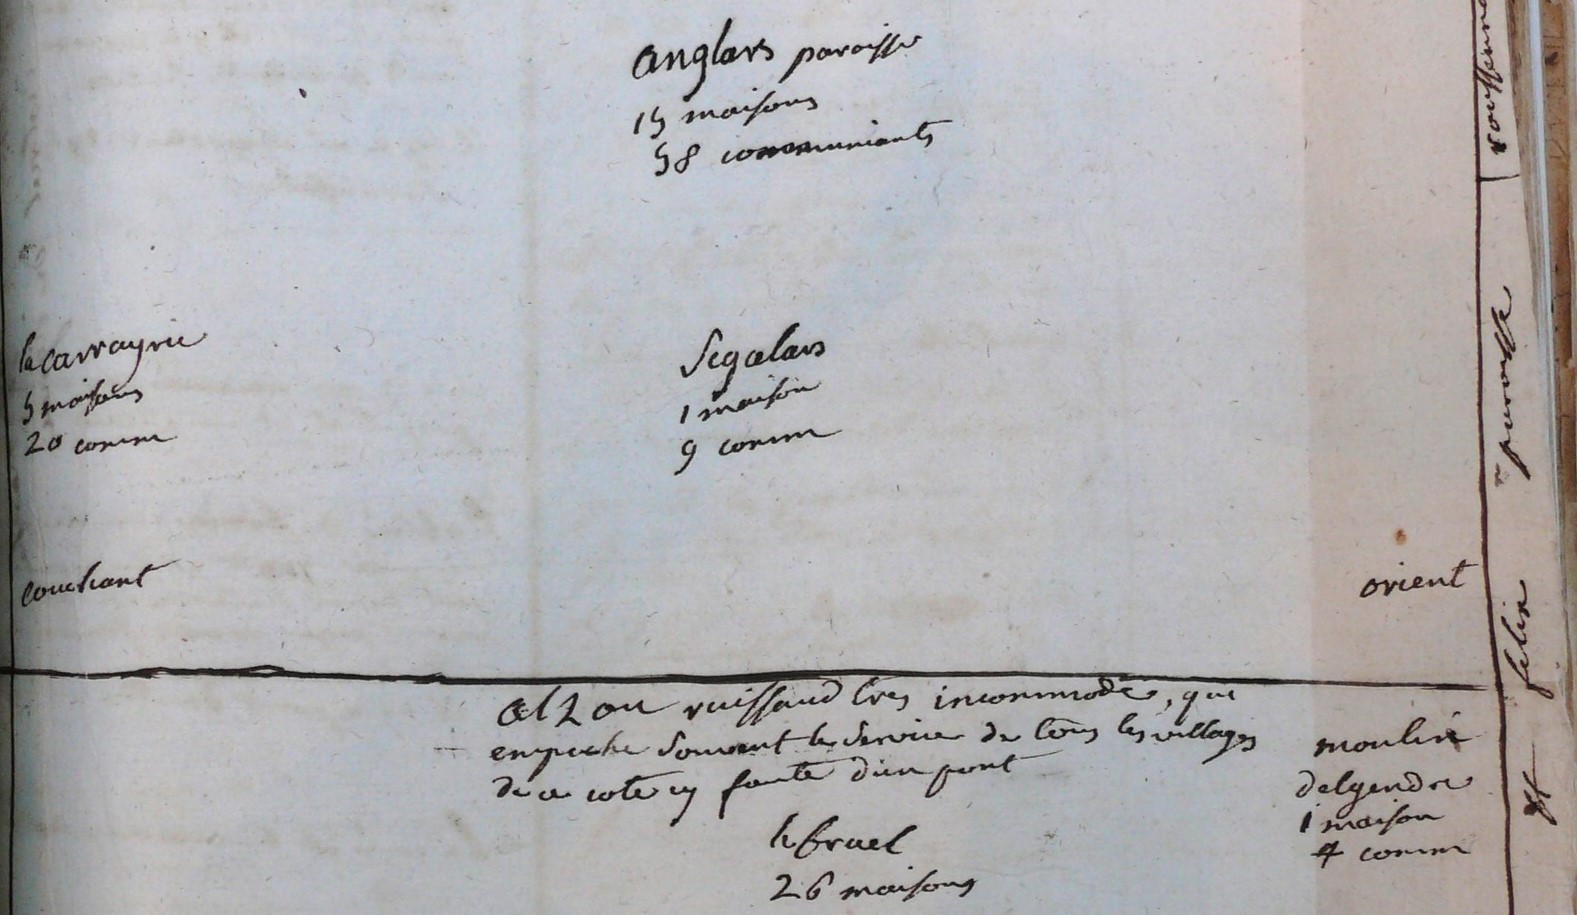 anglars paroisse
15 maisons
58 communiants
la carrayrie
5 maisons
20 comm
Segalars
1 maison
9 comm
couchant
orient
alzou ruissaud tres incommode, qui
empeche souvent le service de tous les villages
de ce cote cy faute d'un pont
moulin
delgendre
1 maison
4 comm
le bruel
26 maisons
st felix paroisse